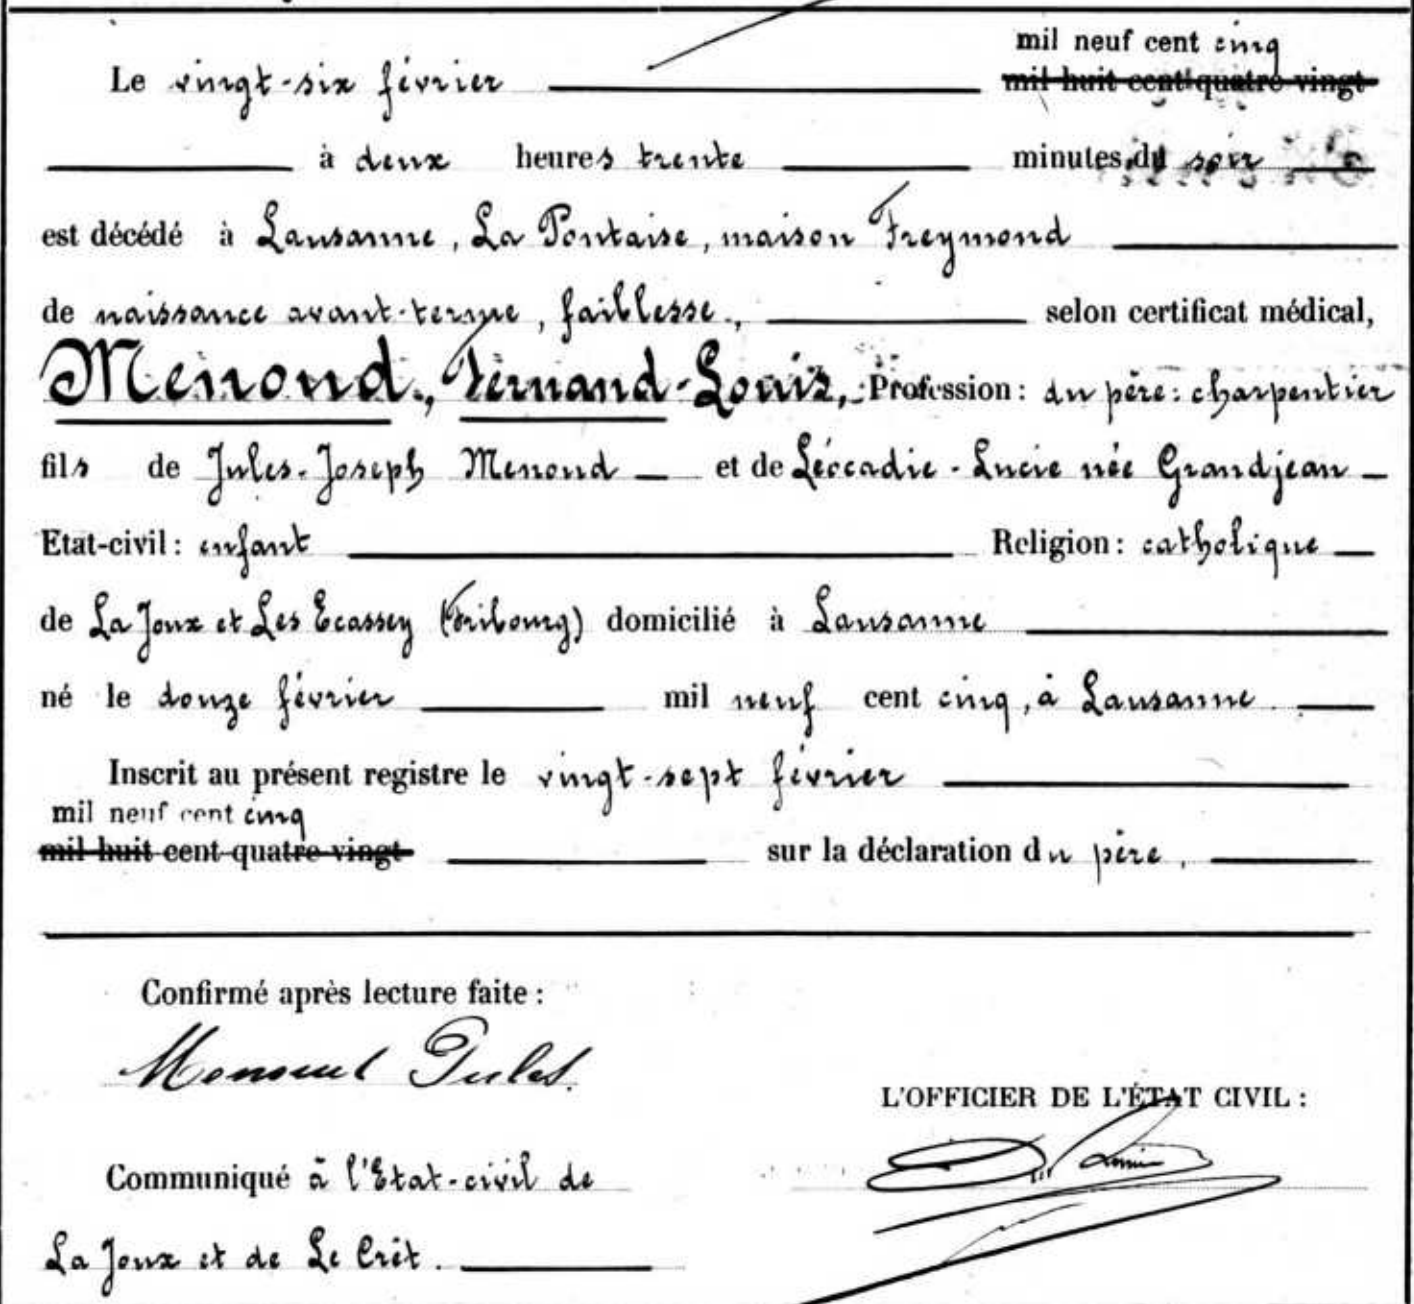 mil neuf cent cinq
Le vingt-six février mil huit cent quatre-vingt
à deux heures trente minutes du soir
est décédé à Lausanne, La Pontaise, maison Freymond
de naissance avant-terme, faiblesse, selon certificat médical,
Menoud, Fernand-Louis, Profession: du père: charpentier
fils de Jules-Joseph Menoud et de Léocadie-Lucie née Grandjean
Etat-civil: enfant Religion: catholique
de La Joux et Les Ecassey (Fribourg) domicilié à Lausanne
né le douze février mil neuf cent cinq, à Lausanne.
Inscrit au présent registre le vingt-sept février
mil neuf cent cinq
mil huit cent quatre-vingt sur la déclaration du père.
Confirmé après lecture faite:
Menoud Jules.
L'OFFICIER DE L'ÉTAT CIVIL:
Communiqué à l'Etat-civil de
La Joux et de Le Crêt.